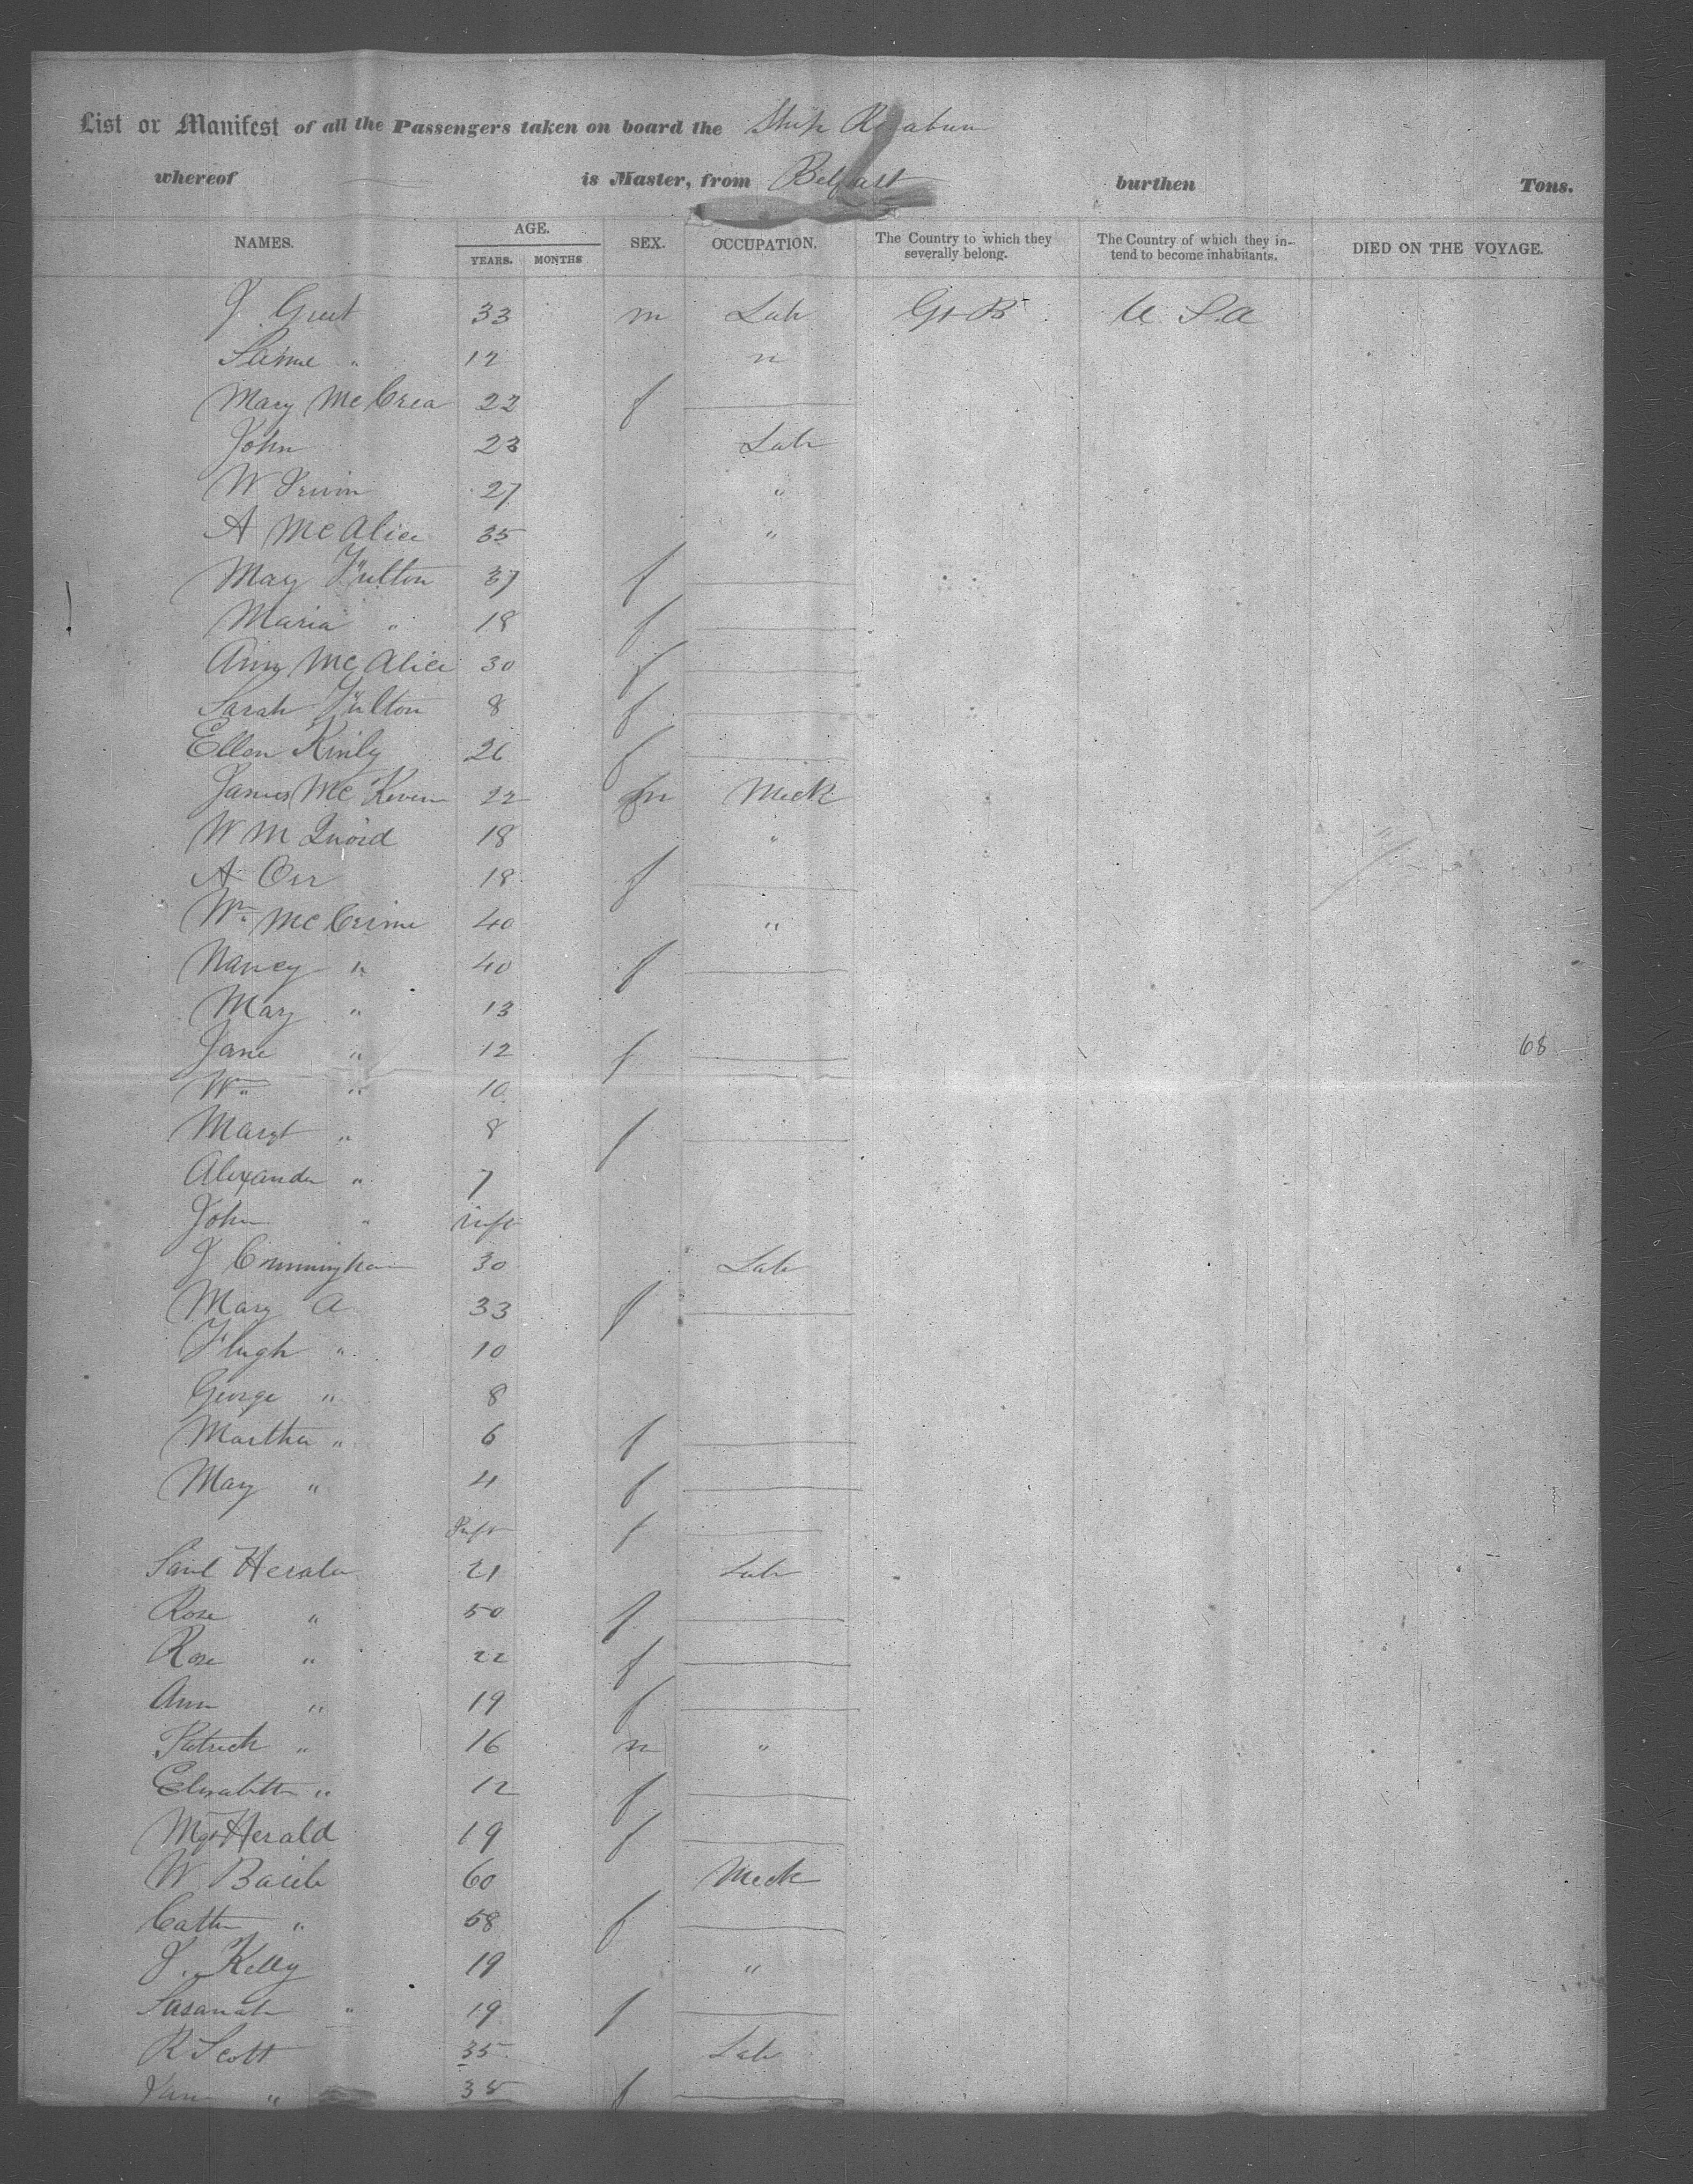 List or Manifest of all the Passengers taken on board the Ship
whereof is Master, from Belfast burthen Tons.
NAMES. AGE. YEARS. MONTHS SEX. OCCUPATION. The Country to which they severally belong. The Country of which they intend to become inhabitants. DIED ON THE VOYAGE.
J 33 m Lab Gt Bt U S.a
12 "
Mary McCrea 22 f
John 23 Lab
W Irwin 27 "
A McAlice 35 "
Mary Fulton 37 f
Maria " 18 f
Ann McAlice 30 f
Sarah Fulton 8 f
Ellen Kinly 26 f
James Mc 22 m Meck
W M Quoid 18 "
A Orr 18 f
Wm McCrime 40 "
Nancy " 40 f
Mary " 13
Jane " 12 f 68
Wm " 10
Margt " 8 f
Alexander " 7
John " inft
J Cunningham 30 Lab
Mary A 33 f
Hugh " 10
George " 8
Martha " 6 f
Mary " 4 f
Inft f
Saml 21 Lab
Rose " 50 f
Rose " 22 f
Ann " 19 f
Patrick " 16 m "
Elisabeth " 12 f
Mgt Herald 19 f
W 60 Meck
Cath " 58 f
J. Kelly 19 "
Susanah " 19 f
R Scott 35 Lab
Jane " 38 f